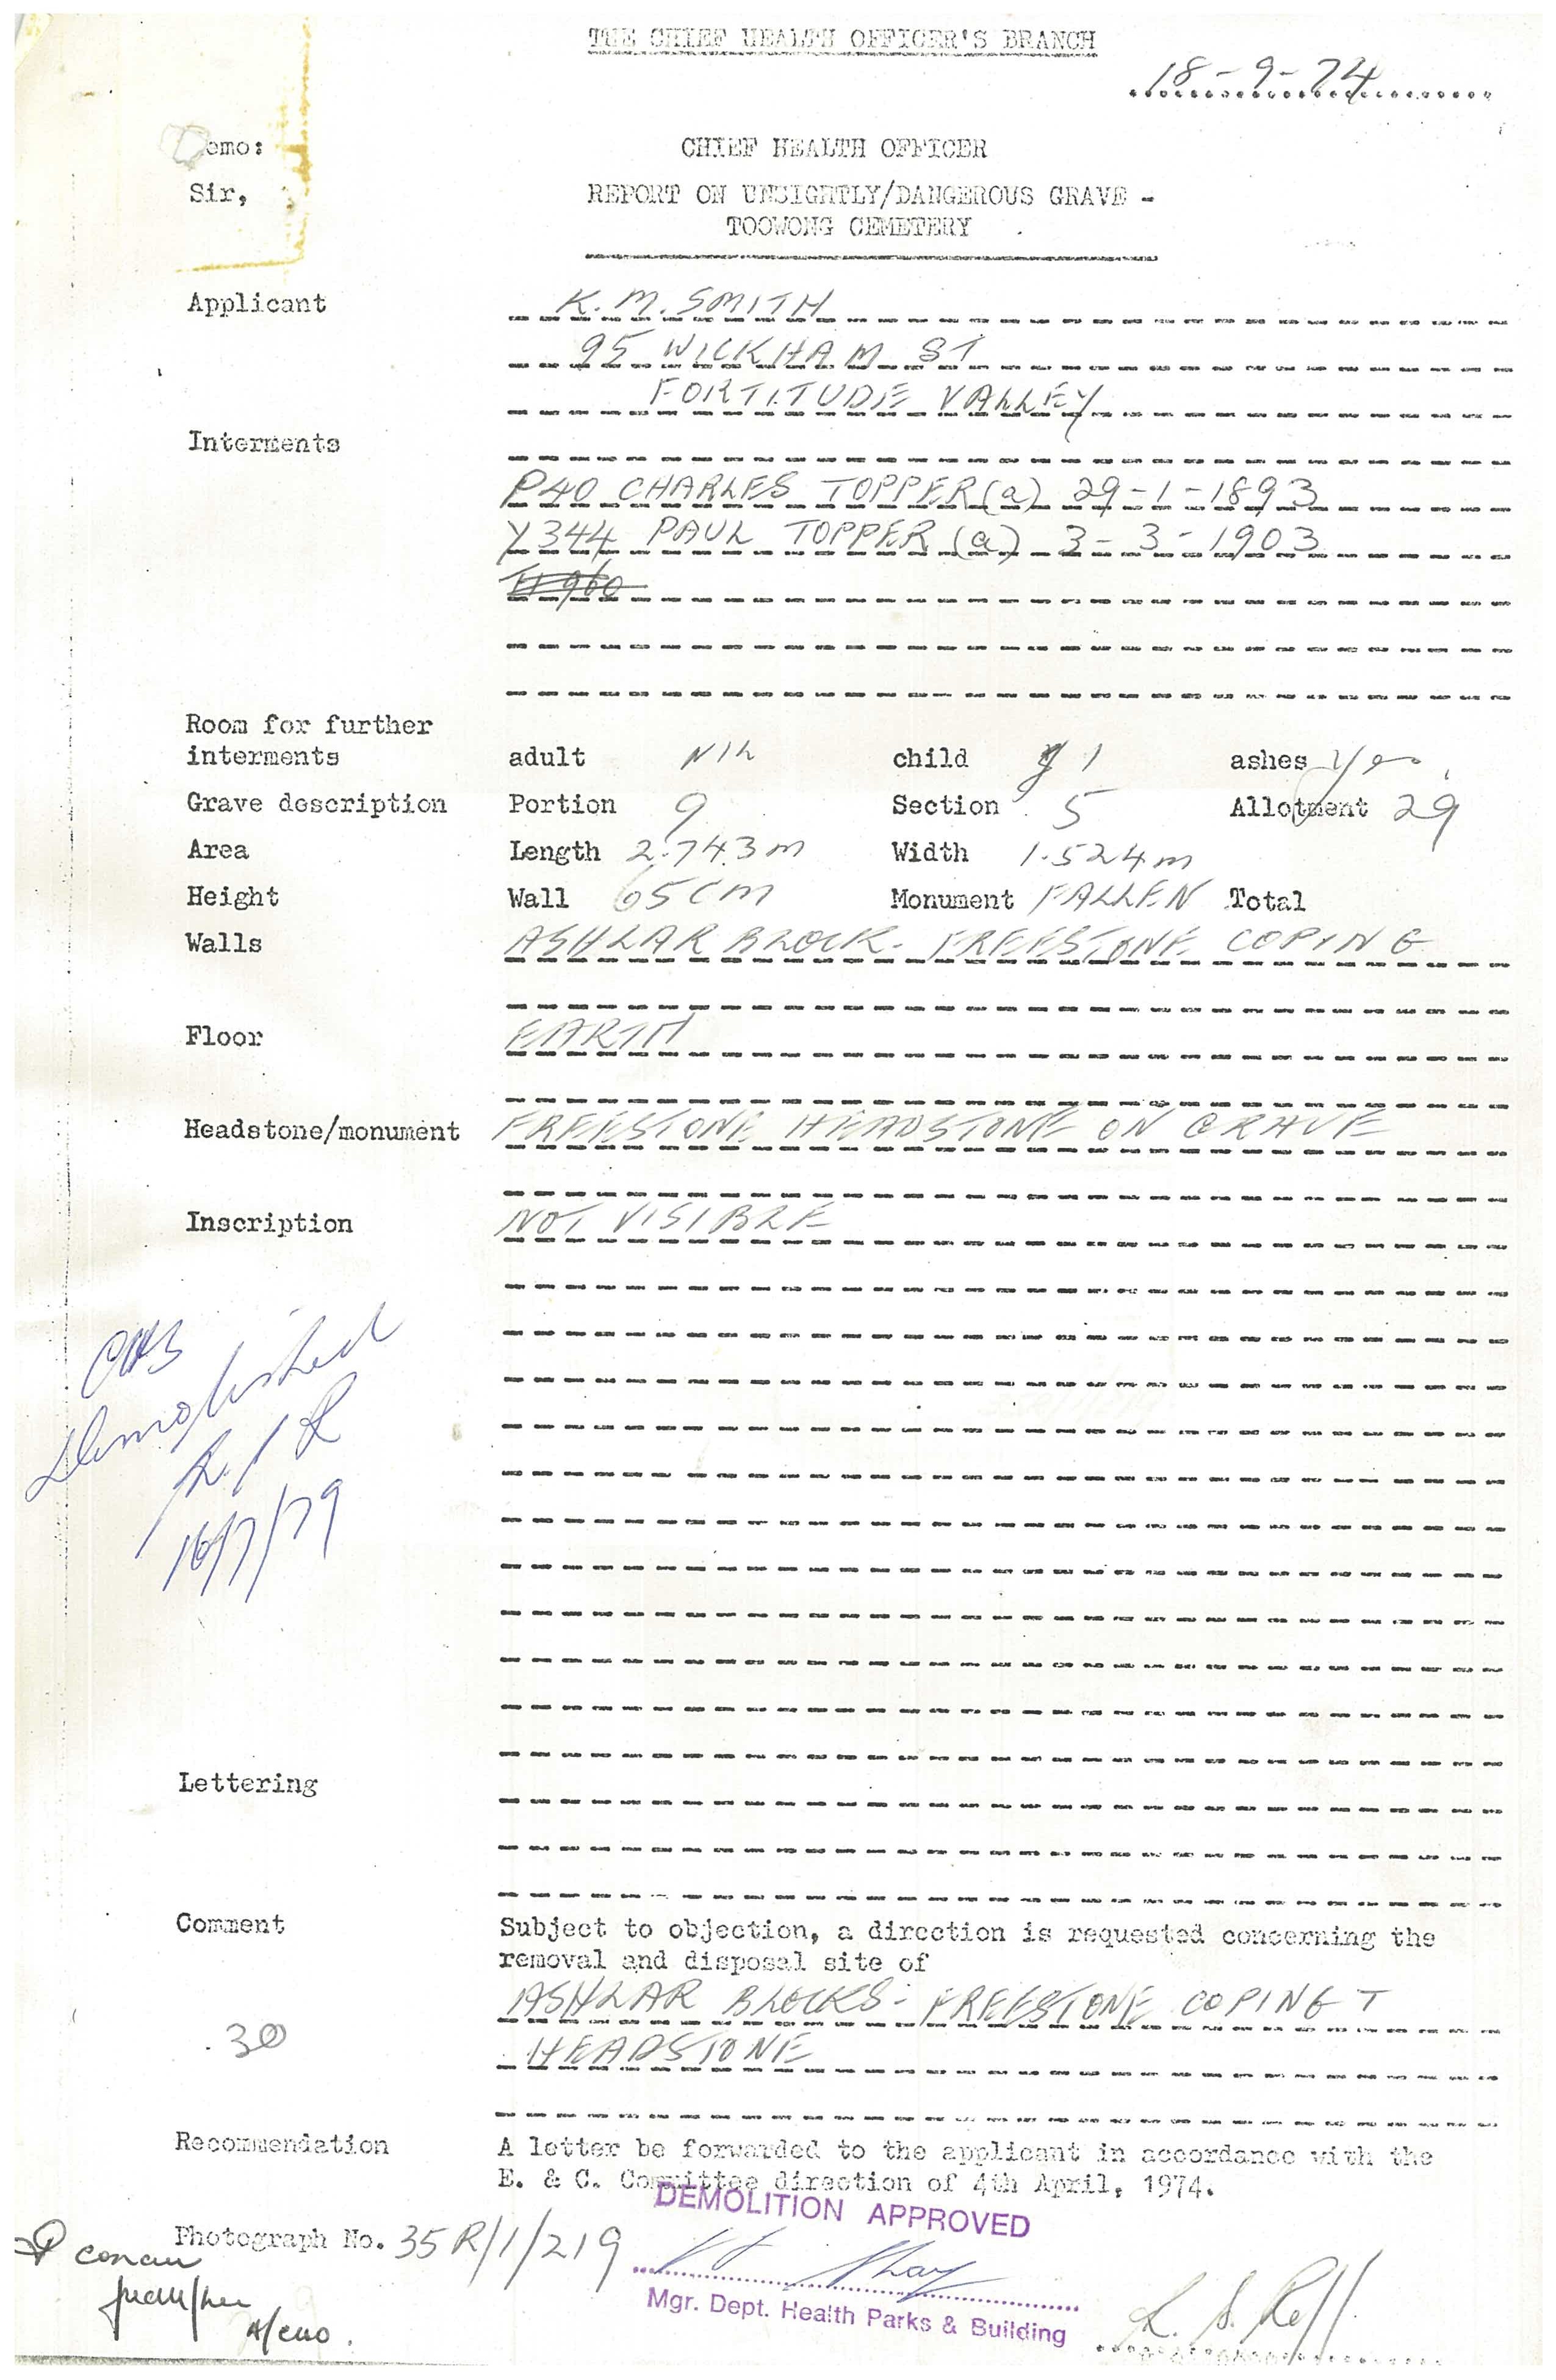 THE CHIEF HEALTH OFFICER'S BRANCH
18-9-74
emo:
CHIEF HEALTH OFFICER
Sir,
REPORT ON UNSIGHTLY/DANGEROUS GRAVE -
TOOWONG CEMETERY
Applicant K. M. SMITH
95 WICKHAM ST
FORTITUDE VALLEY
Interments
P40 CHARLES TOPPER (a) 29-1-1893
Y344 PAUL TOPPER (a) 3-3-1903
Room for further
interments adult NIL child 1 ashes yes
Grave description Portion 9 Section 5 Allotment 29
Area Length 2.743m Width 1.524m
Height Wall 65cm Monument FALLEN Total
Walls ASHLAR BLOCK - FREESTONE COPING
Floor EARTH
Headstone/monument FREESTONE HEADSTONE ON GRAVE
Inscription NOT VISIBLE
Demolished
16/7/79
Lettering
Comment Subject to objection, a direction is requested concerning the
removal and disposal site of
ASHLAR BLOCKS - FREESTONE COPING +
30 HEADSTONE
Recommendation A letter be forwarded to the applicant in accordance with the
E. & C. Committee direction of 4th April, 1974.
DEMOLITION APPROVED
Photograph No. 35R/1/219
Mgr. Dept. Health Parks & Building